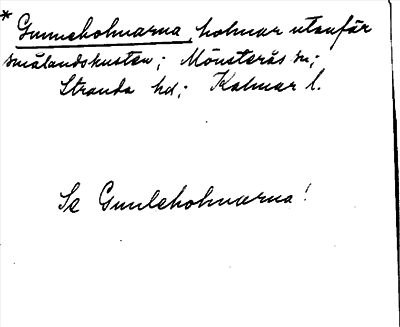 * Gunneholmarna, holmar utanför
smålandskusten; Mönsterås sn;
Stranda hd; Kalmar l.
Se Gunleholmarna!